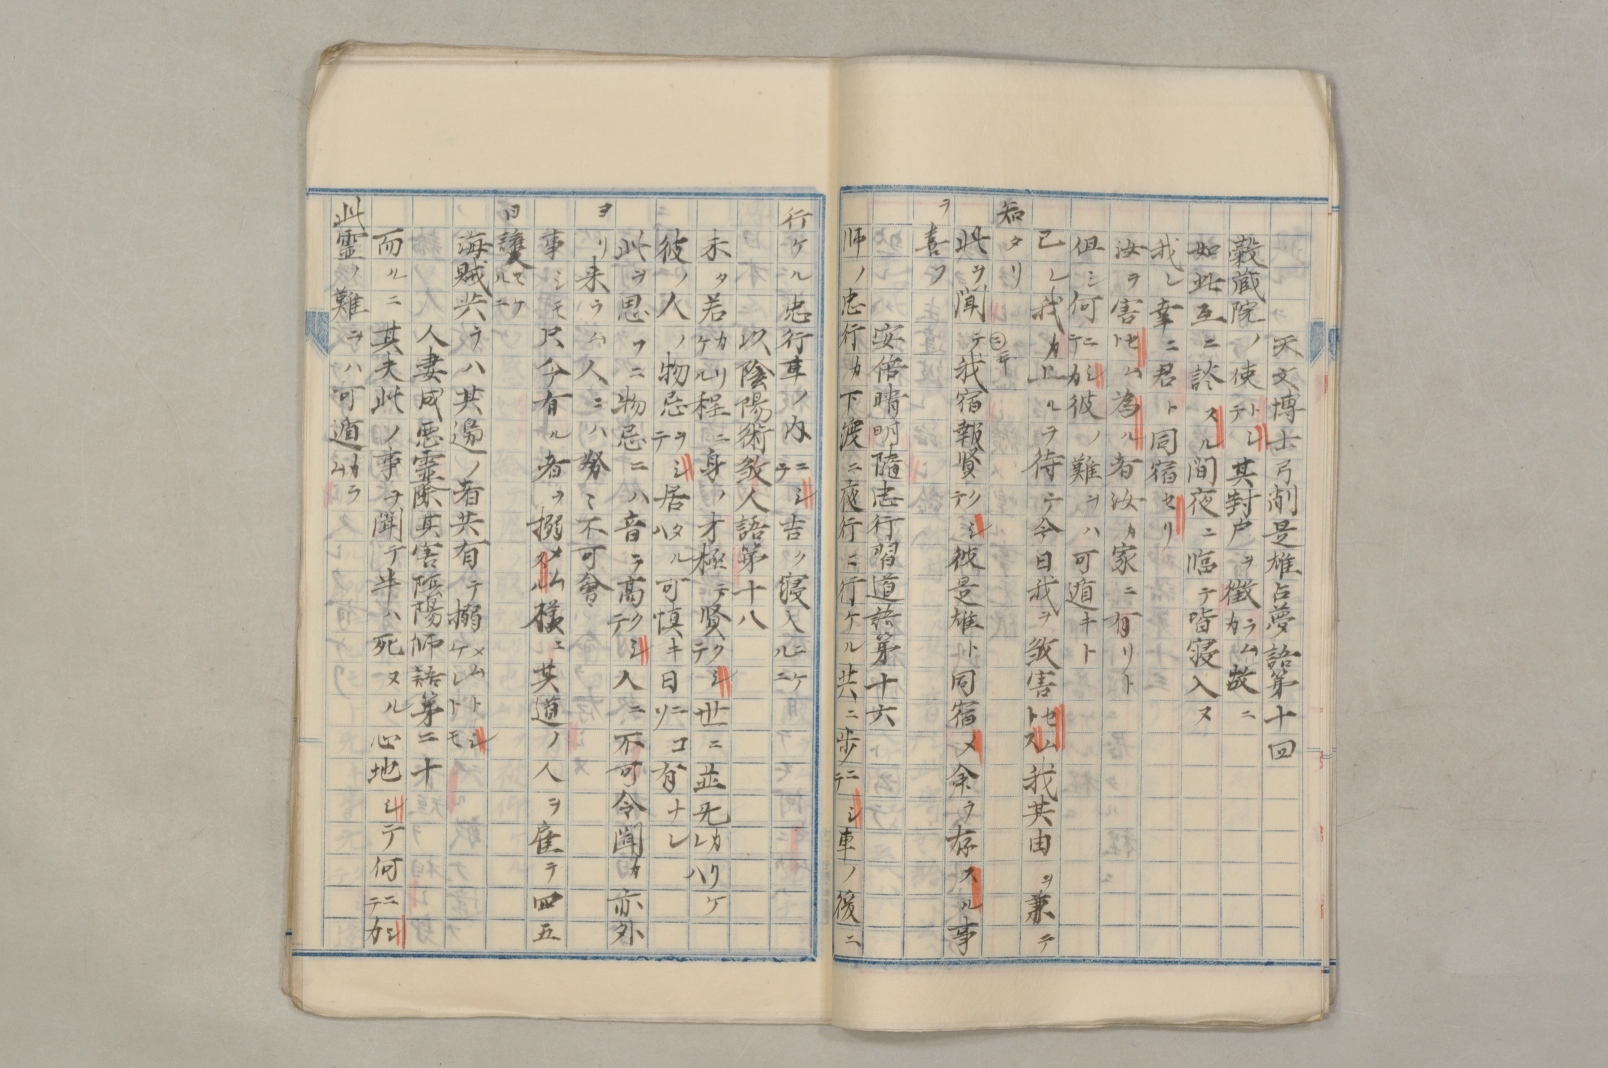 天文博士弓削是雄占夢語第十四
穀蔵院ノ使トシテ其封戸ヲ徴カラム故ニ
如此互ニ談スル間夜ニ臨テ皆寝入ヌ
我レ幸ニ君ト同宿セリ
汝ヲ害セムト為ル者汝カ家ニ有リト
但シ何ニシテカ彼ノ難ヲハ可遁キト
己レ我カ上ルヲ待テ今日我ヲ殺害セムトス我其由ヲ兼テ
知タリ
此ヲ聞テ我宿報賢クシテ彼是雄ト同宿メ命ヲ存スル事
ヲ喜フ
安倍晴明随忠行習道語第十六
師ノ忠行カ下渡ニ夜行ニ行ケル共ニ歩ニシテ車ノ後ニ
行ケル忠行車ノ内ニシテ吉ク寝入ニケルニ
以陰陽術殺人語第十八
未タ若カリケル程ニ身ノ才極テ賢クシテ世ニ並无カリケレハ
彼ノ人ノ物忌ヲシテ居タルハ可慎キ日ニコソ有ナレ
此ヲ思フニ物忌ニハ音ヲ高クシテ人ニ不可令聞カ亦外
ヨリ来ラム人ニハ努々不可會
事シモ只今有ル者ヲ搦メムスル様ニ其道ノ人ヲ雇テ四五
日護ケルニ
海賊共ヲハ其邊ノ者共有テ搦メムトシケレトモ
人妻成悪霊除其害陰陽師語第二十
而ルニ其夫此ノ事ヲ聞テ半ハ死ヌル心地シテ何ニシテカ
此霊ノ難ヲハ可遁カラム